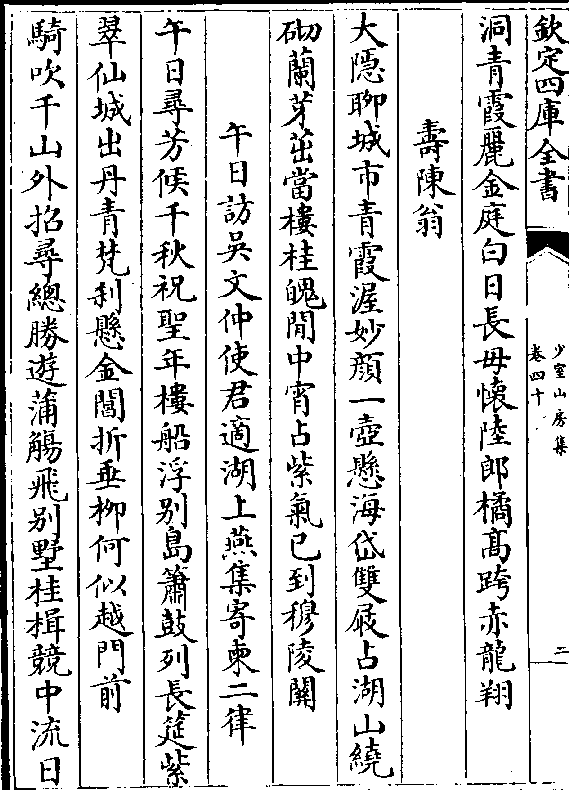 欽定四庫全書
少室山房集
卷四十
二
洞青霞麗金庭白日長毋懷陸郎橘髙跨赤龍翔
壽陳翁
大隠聊城市青霞渥妙顔一壺懸海岱雙屐占湖山繞
砌蘭芽茁當樓桂魄閒中宵占紫氣已到穆陵闗
午日訪吳文仲使君適湖上燕集寄柬二律
午日尋芳候千秋祝聖年樓船浮别島簫鼓列長筵紫
翠仙城出丹青梵刹懸金閶折垂柳何似越門前
騎吹千山外招尋總勝遊蒲觴飛别墅桂楫競中流日